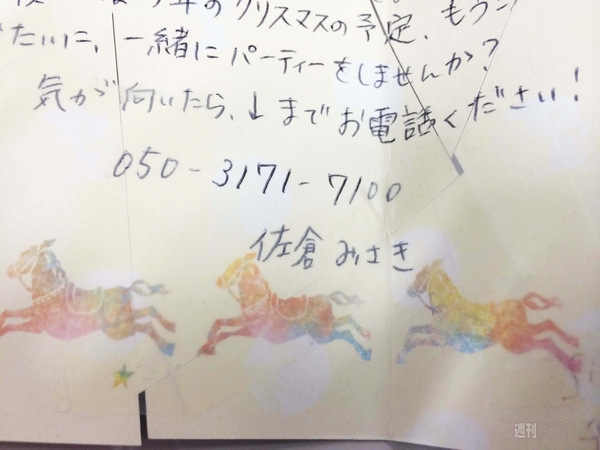 年のクリスマスの予定、もう
たいに、一緒にパーティーをしませんか?
気が向いたら、↓までお電話ください!
050-3171-7100
佐倉みさき
週刊